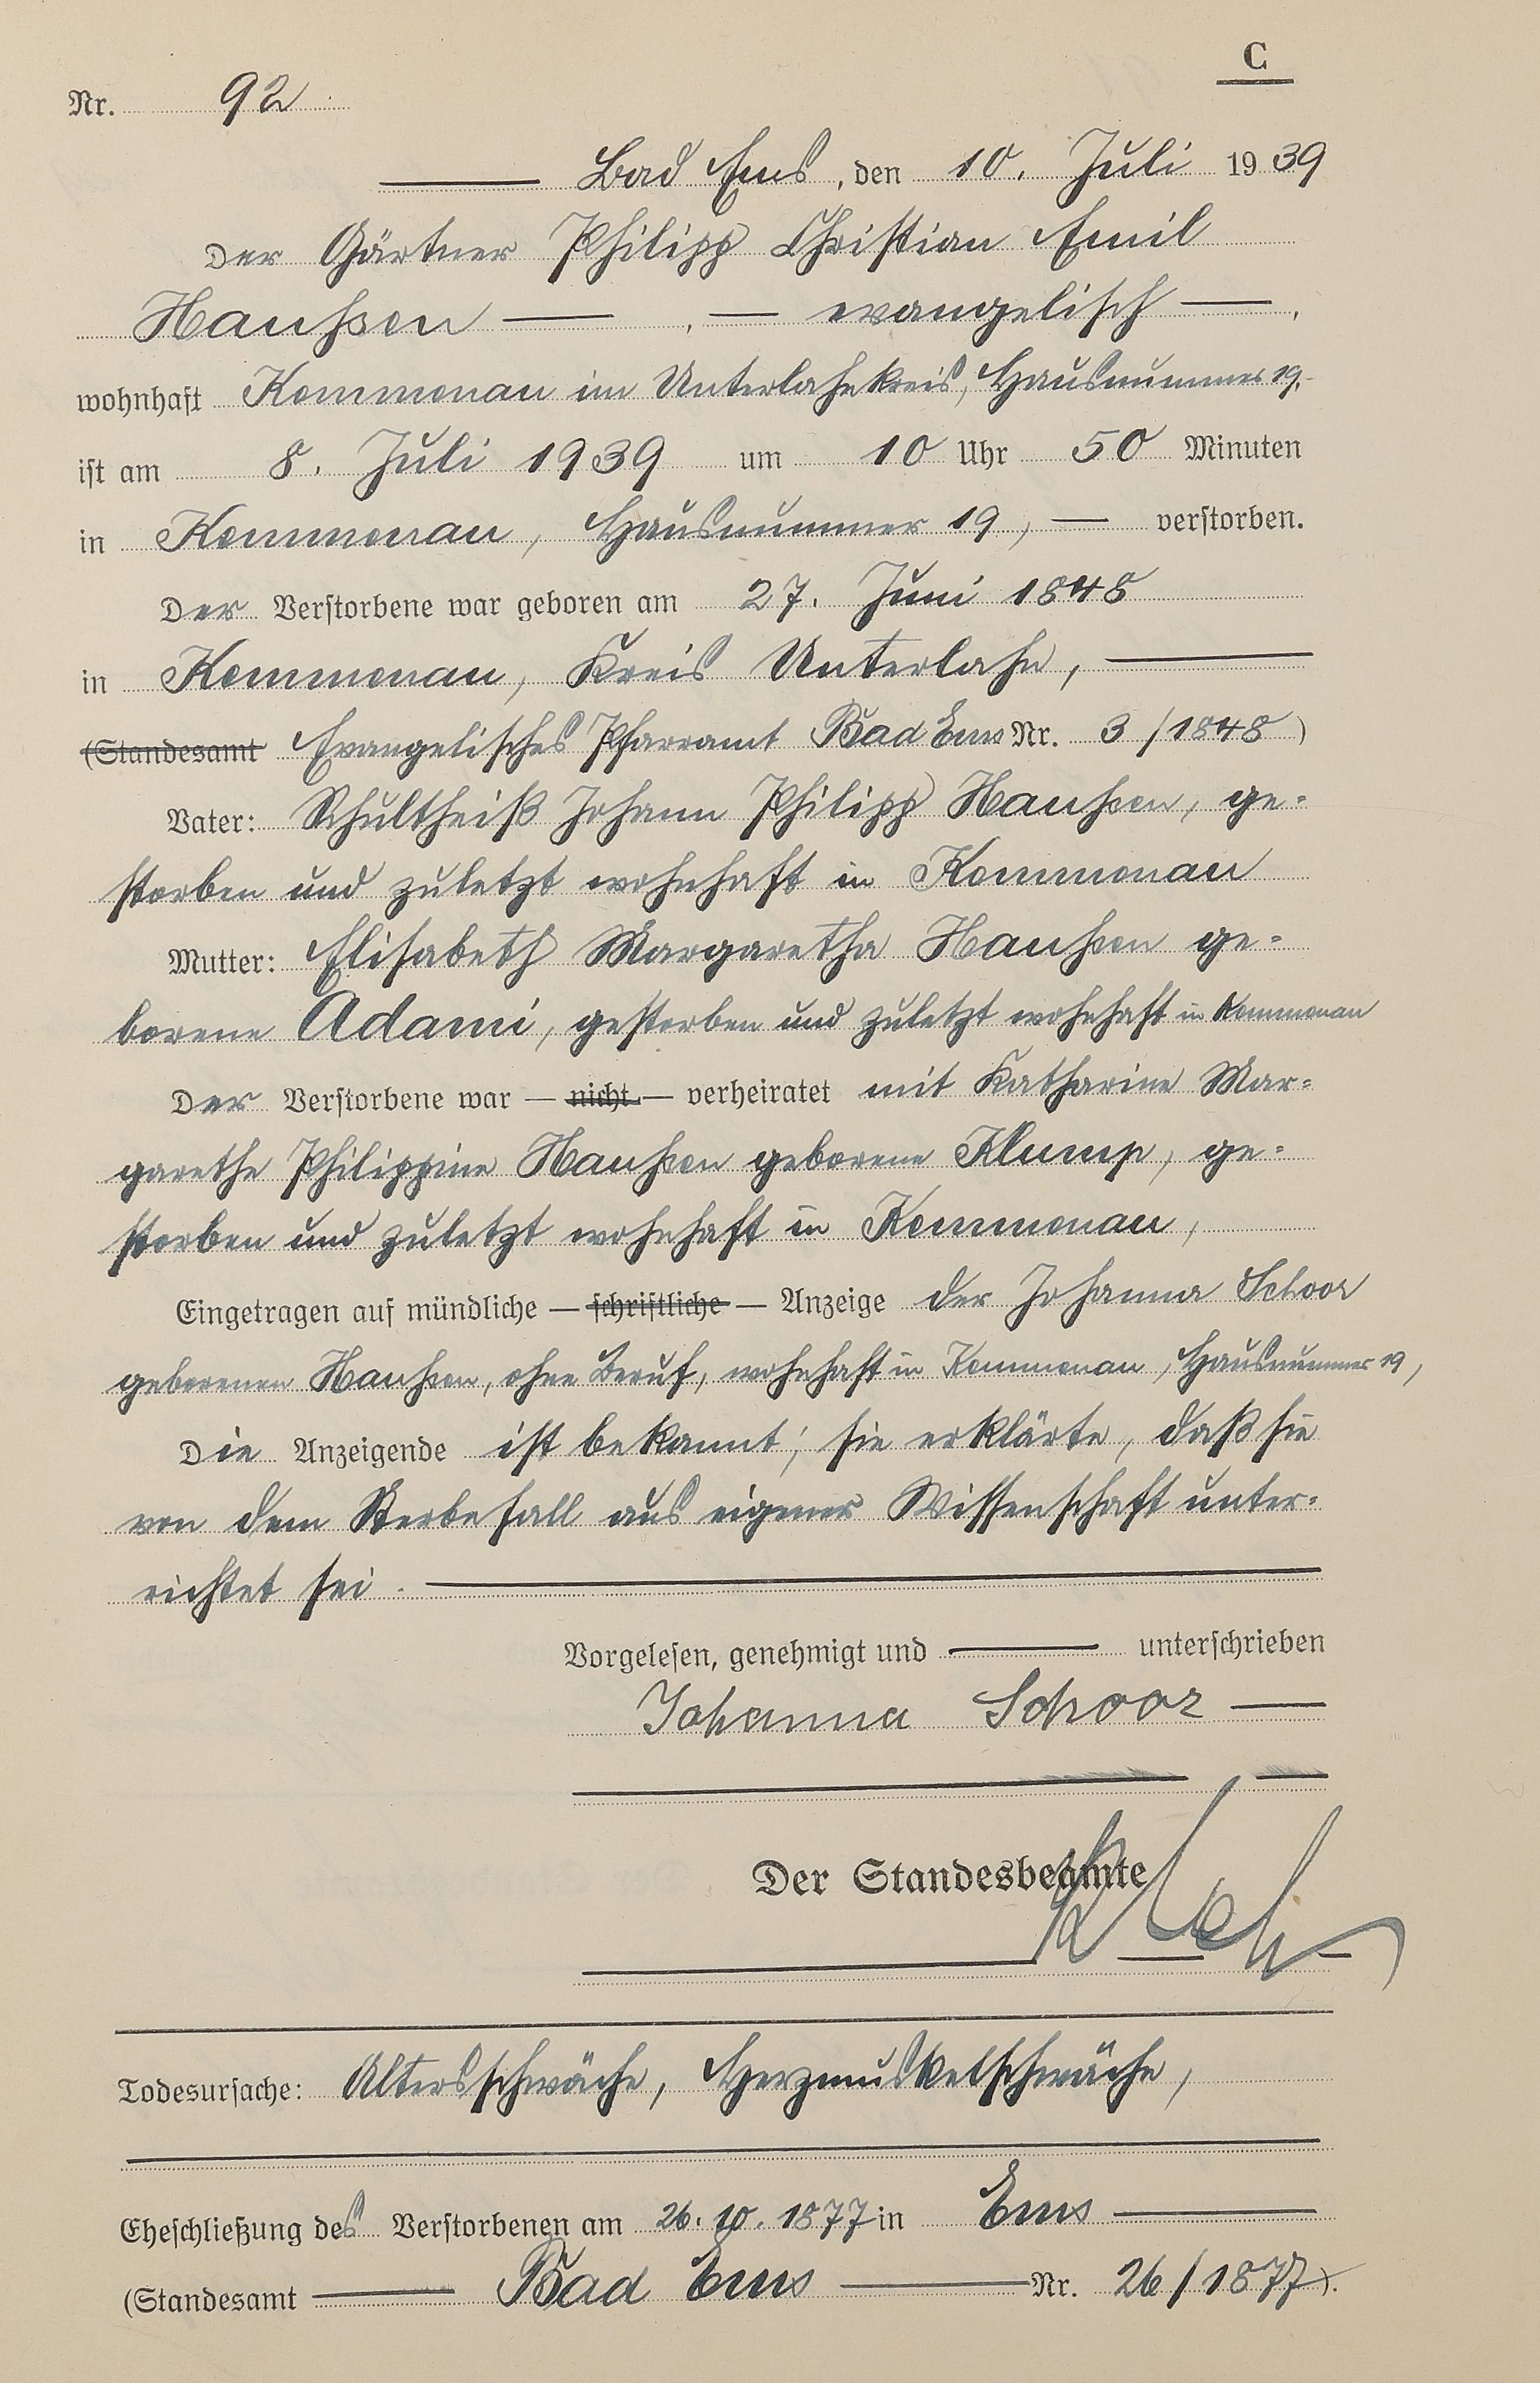 C
Nr. 92
Bad Ems, den 10. Juli 1939
Der Gärtner Philipp Christian Emil
Haußsen — , — evangelisch —,
wohnhaft Kemmenau im Unterlahnkreis, Hausnummer 19,
ist am 8. Juli 1939 um 10 Uhr 50 Minuten
in Kemmenau, Hausnummer 19, — verstorben.
Der Verstorbene war geboren am 27. Juni 1848
in Kemmenau, Kreis Unterlahn, —
(Standesamt Evangelisches Pfarramt Bad Ems Nr. 3/1848)
Vater: Schultheiß Johann Philipp Haußsen, ge-
storben und zuletzt wohnhaft in Kemmenau
Mutter: Elisabeth Margaretha Haußsen ge-
borene Adami, gestorben und zuletzt wohnhaft in Kemmenau
Der Verstorbene war — nicht — verheiratet mit Katharine Mar-
garethe Philippine Haußsen geborene Klump, ge-
storben und zuletzt wohnhaft in Kemmenau,
Eingetragen auf mündliche — schriftliche — Anzeige der Johanna Schoor
geborenen Haußsen, ohne Beruf, wohnhaft in Kemmenau, Hausnummer 19,
Die Anzeigende ist bekannt; sie erklärte, daß sie
von dem Sterbefall aus eigener Wissenschaft unter-
richtet sei.
Vorgelesen, genehmigt und — unterschrieben
Johanna Schoor —
Der Standesbeamte
Todesursache: Altersschwäche, Herzmuskelschwäche,
Eheschließung des Verstorbenen am 26.10.1877 in Ems —
(Standesamt — Bad Ems — Nr. 26/1877).